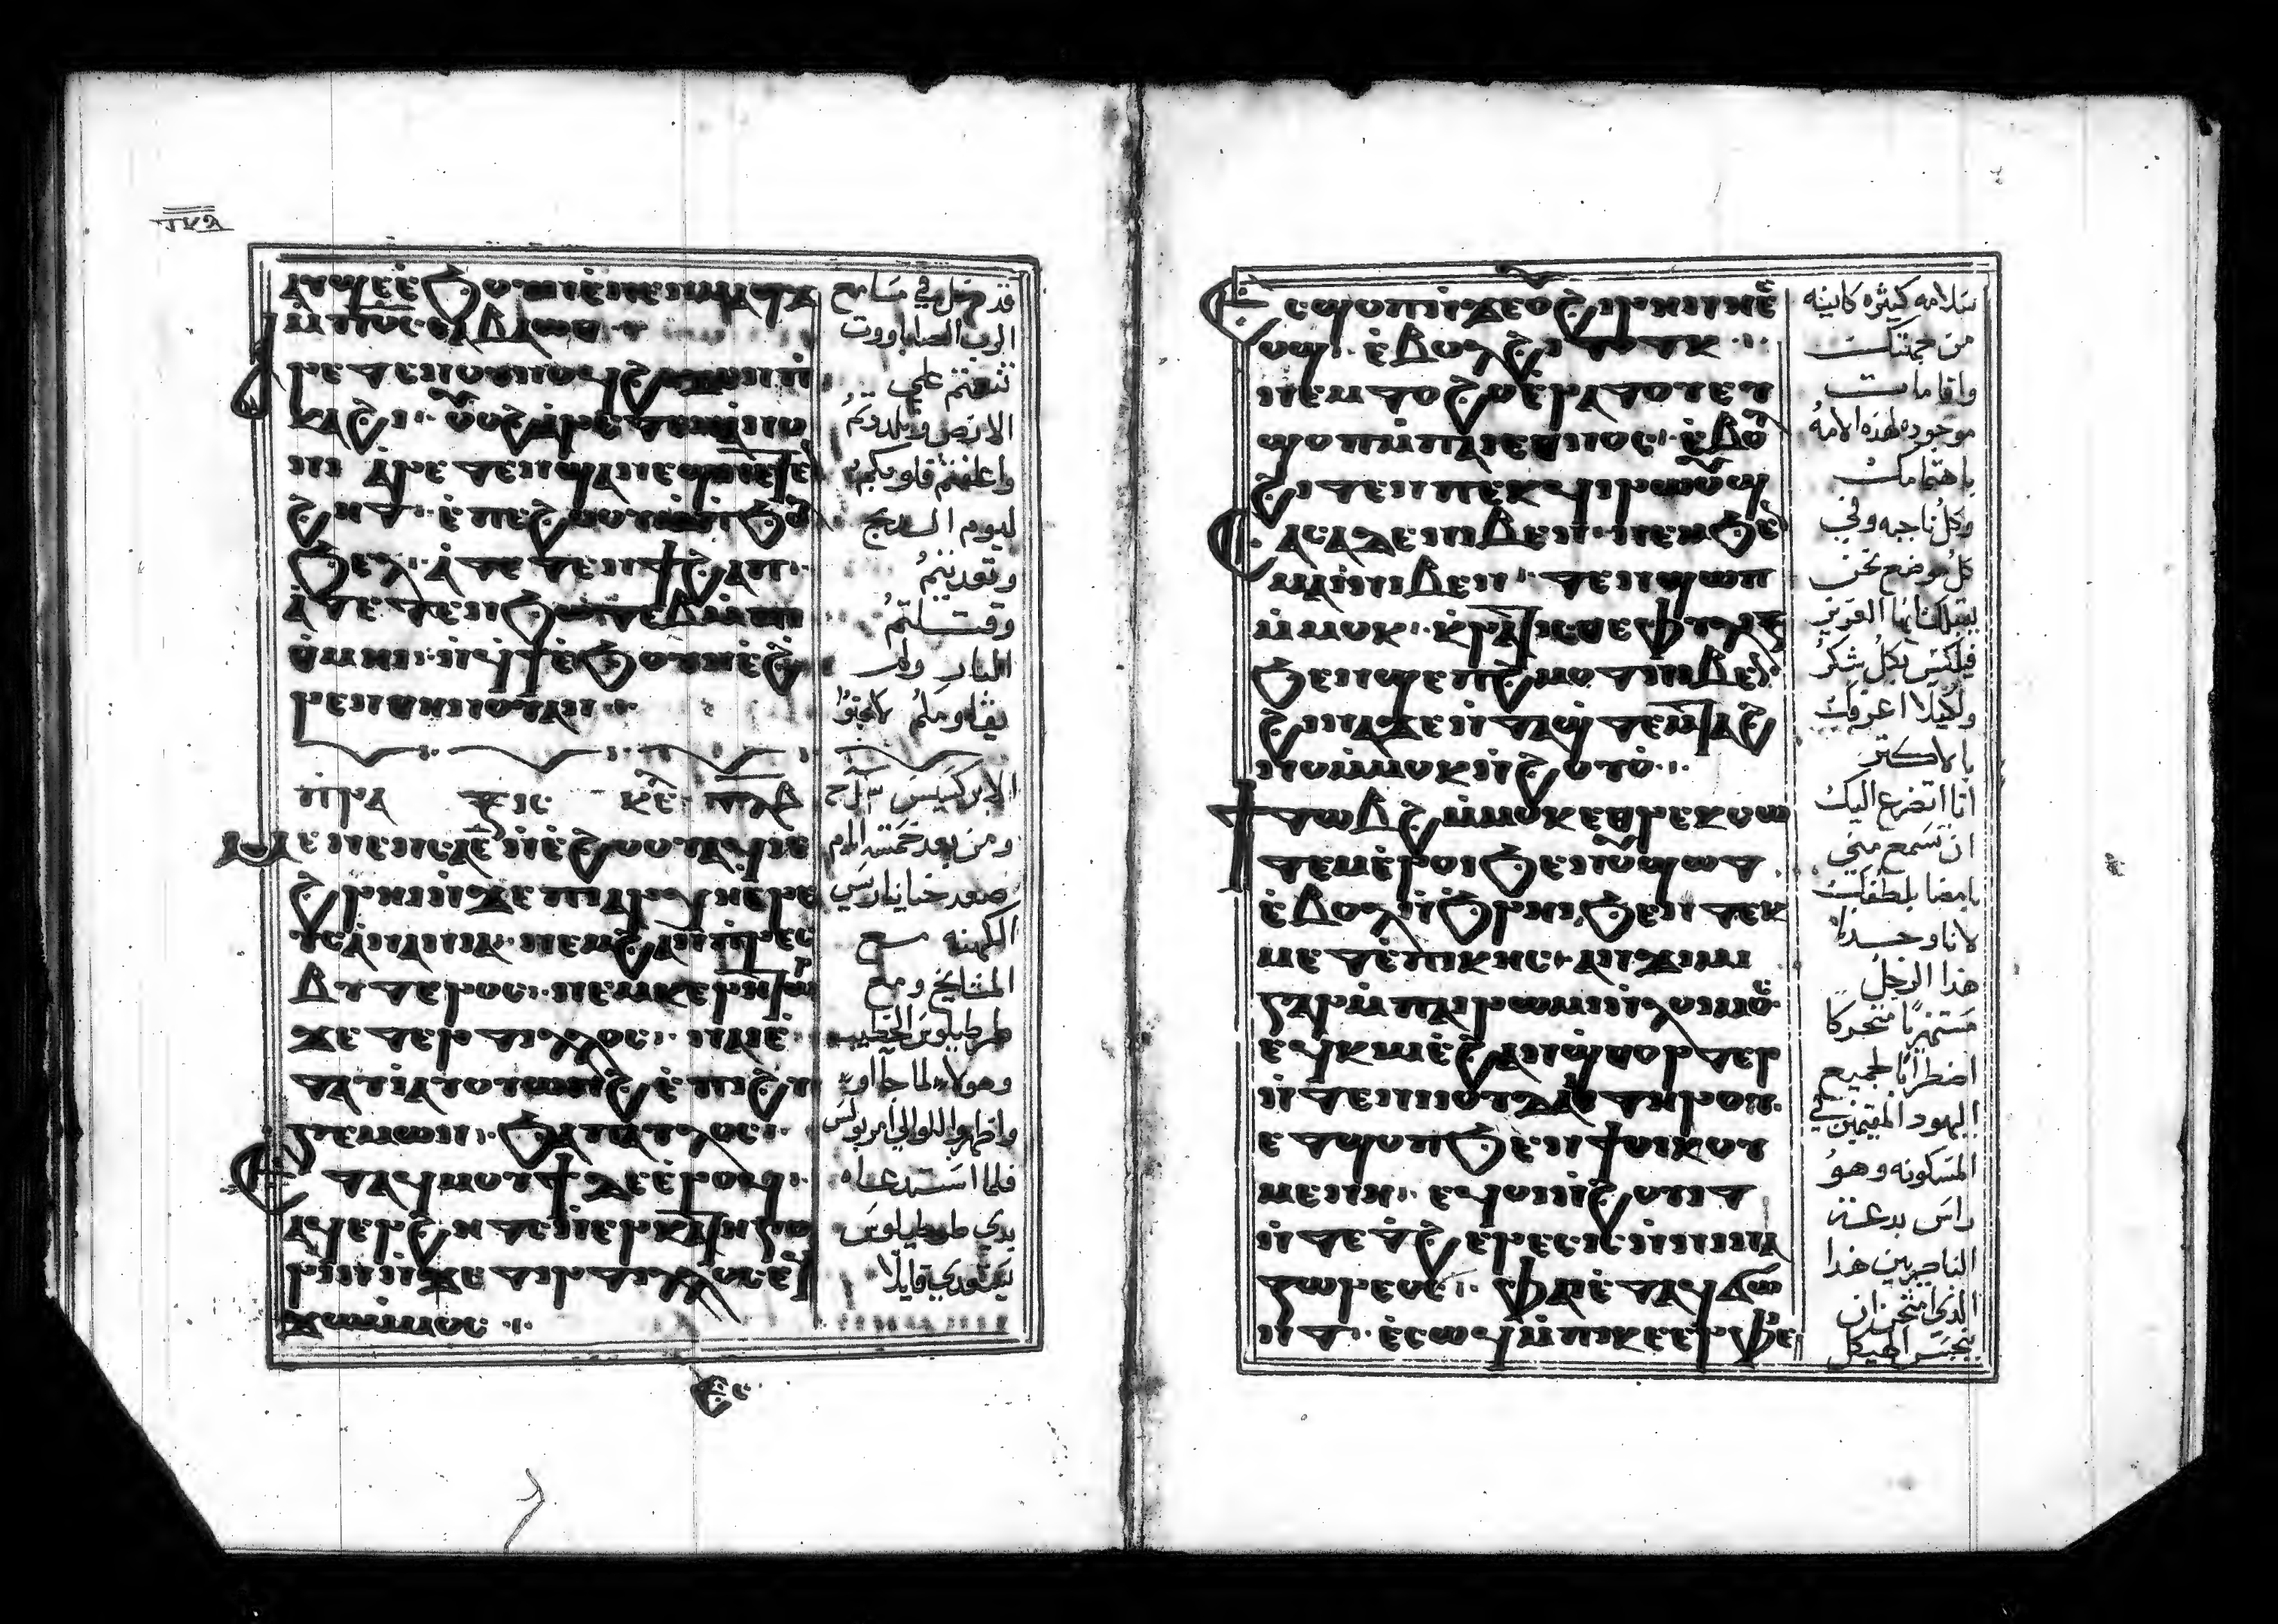 ⲁⲩϣⲉ ⲉ̀ϧⲟⲩⲛ ⲉ̀ⲛⲉⲛⲙⲁϣϫ
ⲙ̀ⲡϭⲥ ⲥⲁⲃⲁⲱⲑ
ⲁⲣⲉⲧⲉⲛⲟⲩⲛⲟϥ ϩⲓϫⲉⲛ ⲡⲓ
ⲕⲁϩⲓ ⲟⲩⲟϩ ⲁ̀ⲣⲉⲧⲉⲛ
ⲁ̀ⲣⲉⲧⲉⲛϣⲁⲛⲉϣ ⲛⲉⲧⲉⲛ
ϩⲏⲧ ⲉ̀ⲡⲉϩⲟⲟⲩ ⲙ̀ⲡϧⲟ
ϧⲉⲗ ⲁ̀ⲧⲉⲧⲉⲛϯϩⲁⲡ
ⲁ̀ⲧⲉⲧⲉⲛϧⲱⲧⲉⲃ ⲙ̀ⲡⲓ
ⲑ̀ⲙⲏⲓ ⲛ̀ϥϯ ⲉ̀ϧⲟⲩⲛ ⲉ̀ϩ
ⲣⲉⲛ ⲑⲏⲛⲟⲩ ⲁⲛ
ⲡⲣⲁ ⲕⲉ
ⲙⲉⲛⲉⲛⲥⲁ ⲉ̄ ⲛ̀ⲉ̀ϩⲟⲟⲩ ⲁϥⲓ ⲉ̀
ϩⲣⲏⲓ ⲛ̀ϫⲉ ⲡⲓⲁⲣⲭⲏⲉⲣⲉ
ⲩⲥ ⲁⲛⲁⲛⲓⲁ ⲛⲉⲙ ϩⲁⲛⲡⲣⲉⲥ
ⲃⲩⲧⲉⲣⲟⲥ ⲛⲉⲙ ⲕⲉⲣⲏⲧⲱⲣ
ϫⲉ ⲧⲉⲣⲧⲩⲗⲗⲟⲥ ⲛⲁⲓ ⲉ̀
ⲧⲁⲩⲓ̀ ⲁⲩⲟⲩⲱⲛϩ ⲉ̀ⲡⲓϩⲏ
ⲅⲉⲙⲱⲛ ϧⲁ ⲡⲁⲩⲗⲟⲥ
ⲉⲧⲁϥⲙⲟⲩϯ ⲇⲉ ⲉ̀ⲣⲟϥ
ⲁϥⲉⲣϩⲏⲧⲥ ⲛ̀ⲉⲣⲕⲁⲧⲏⲅⲟ
ⲣⲓⲛ ⲛ̀ϫⲉ ⲧⲉⲣⲧⲩⲗⲗⲟⲥ ⲉϥ
ϫⲱ ⲙ̀ⲙⲟⲥ
قد دخل في مسامع
الرب الصاباووت
تنعمتم علي
الارض وتلذذتم
واعلفتم قلوبكم
ليوم الذبح
وتعديتم
وقتلتم
البار ولم
يقاومكم لانكم
الابركسيس
ومن بعد خمسة ايام
صعد حنانيا رييس
الكهنه مع
المشايخ ومع
طرطلوس الخطيب
وهولاء لما جااو
واظهروا للوالي امر بولس
فلما استدعاه
بدي طرطلوس
يعتدي قايلا
ϩⲥ
ϩⲥ ⲉϥϣⲟⲡ ⲛ̀ϫⲉ ⲟⲩϩⲓⲣⲏⲛⲏ ⲉ
ⲟϣ ⲉ̀ⲃⲟⲗϩⲓⲧⲟⲧⲕ
ⲛⲉⲙ ⲧⲟϩⲟ ⲉ̀ⲣⲁⲧⲟⲩ ⲉⲩ
ϣⲟⲡ ⲙ̀ⲡⲁⲓⲉⲑⲛⲟⲥ ⲉ̀ⲃⲟⲗ
ϩⲓⲧⲉⲛ ⲡⲉⲕϥⲓⲣⲱⲟⲩϣ
ⲥⲁⲥⲁ ⲛⲓⲃⲉⲛ ⲛⲉⲙ ϧⲉⲛ
ⲙⲁⲓ ⲛⲓⲃⲉⲛ ⲧⲉⲛϣⲱⲡ
ⲙ̀ⲙⲟⲕ ⲕ̀ⲣⲁⲧⲓⲥⲑⲉ ⲫⲩⲗⲓⲝ
ϧⲉⲛ ϣⲉⲡϩⲙⲟⲧ ⲛⲓⲃⲉⲛ
ϩⲓⲛⲁ ϫⲉ ⲛ̀ⲧⲁϣⲧⲉⲙⲧⲁϩ
ⲛⲟ ⲙ̀ⲙⲟⲕ ⲛ̀ϩⲟⲩⲟ̀
ϯⲧⲱⲃϩ ⲙ̀ⲙⲟⲕ ⲉⲑⲣⲉⲕⲥⲱ
ⲧⲉⲙ ⲉ̀ⲣⲟⲓ ϧⲉⲛ ⲟⲩϣⲱⲧ
ⲉ̀ⲃⲟⲗ ⲛ̀ϧⲣⲏⲓ ϧⲉⲛ ⲧⲉⲕ
ⲙⲉⲧⲉ̀ⲡⲓⲕⲏⲥ ⲁⲛϫⲓⲙⲓ
ⲅⲁⲣ ⲙ̀ⲡⲁⲓⲣⲱⲙⲓ ⲛ̀ⲗⲟⲓⲙⲟⲥ
ⲉϥⲕⲓⲙ ⲉ̀ϩⲁⲛϣⲑⲟⲣⲧⲉⲣ
ⲛ̀ⲧⲉ ⲛⲓⲓⲟⲩⲇⲁⲓ ⲧⲏⲣⲟⲩ
ⲉⲧϣⲟⲡ ϧⲉⲛ ϯⲟⲓⲕⲟⲩ
ⲙⲉⲛⲏ ⲉϥⲟⲓ ⲛ̀ϩⲟⲩⲓⲧ
ⲛ̀ⲧⲉ ⲧϩⲉⲣⲉⲥⲓⲥ ⲛ̀ⲛⲓⲛⲁ
ⲍⲱⲣⲉⲟⲥ ⲫⲁⲓ ⲉ̀ⲧⲁϥϭⲱ
ⲛⲧ ⲉ̀ⲥⲱϥ ⲙ̀ⲡⲓⲕⲉⲉⲣⲫⲉⲓ
سلامه كثيره كاينه
من جهتك
واقامات
موجوده لهذه الامه
باهتمامك
وكل ناحيه وفي
كل موضع نحن
نقبلك ايها العزيز
فيلكس بكل شكر
ولكيلا اعوقك
بالاكتر
انا اتضرع اليك
ان تسمع مني
بلطفك
لانا وجدنا
هذا الرجل
محركا
اضطرابا لجميع
اليهود المقيمين في
المسكونه وهو
راس بدعة
الناصريين هذا
الذي امتحن ان
ينجس الهيكل